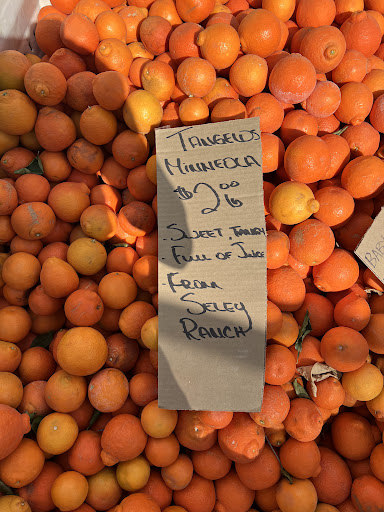 TANGELOS
MINNEOLA
$2.00 lb
- SWEET, TANGY
- FULL OF JUICE
- FROM
SELEY
RANCH